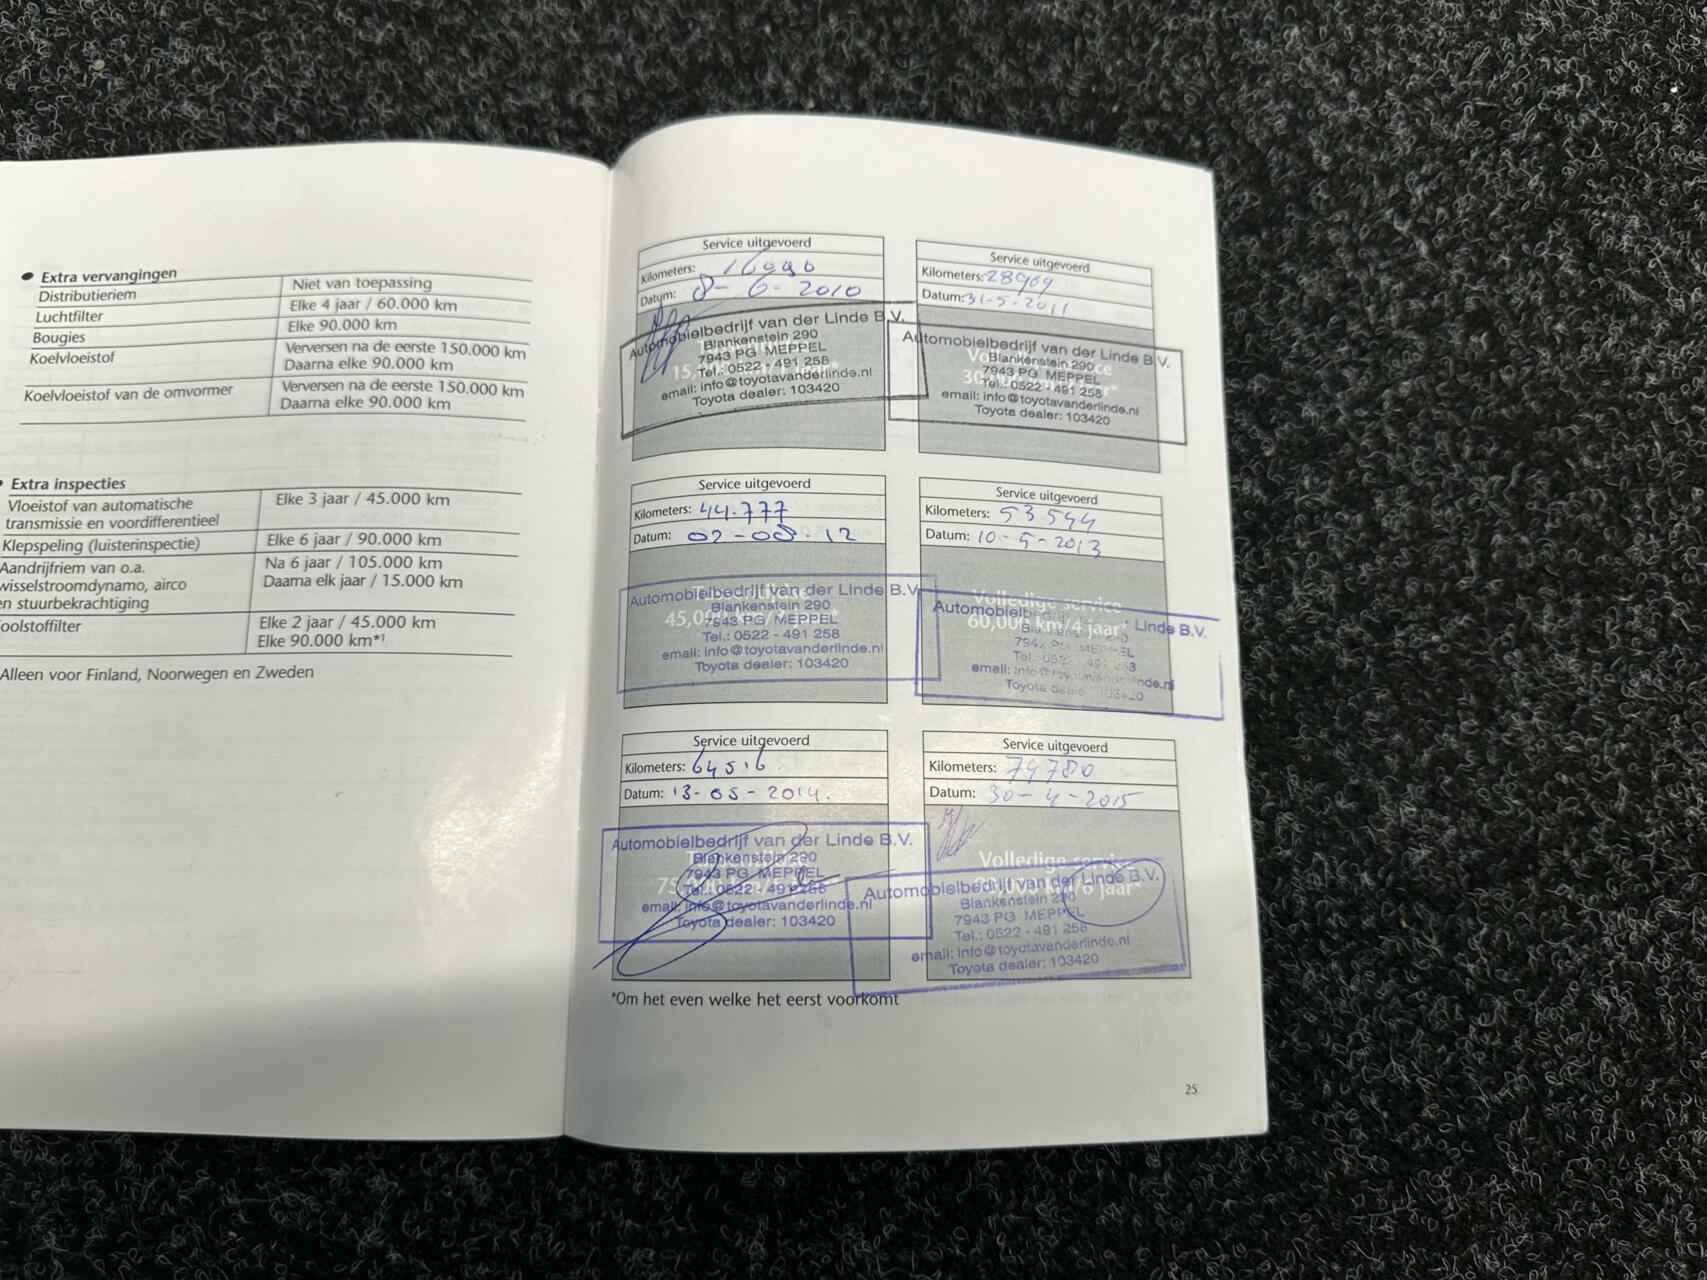 ● Extra vervangingen
Distributieriem Niet van toepassing
Luchtfilter Elke 4 jaar / 60.000 km
Bougies Elke 90.000 km
Koelvloeistof Verversen na de eerste 150.000 km
Daarna elke 90.000 km
Koelvloeistof van de omvormer Verversen na de eerste 150.000 km
Daarna elke 90.000 km
Extra inspecties
Vloeistof van automatische Elke 3 jaar / 45.000 km
transmissie en voordifferentieel
Klepspeling (luisterinspectie) Elke 6 jaar / 90.000 km
Aandrijfriem van o.a. Na 6 jaar / 105.000 km
wisselstroomdynamo, airco Daarna elk jaar / 15.000 km
en stuurbekrachtiging
oolstoffilter Elke 2 jaar / 45.000 km
Elke 90.000 km*¹
Alleen voor Finland, Noorwegen en Zweden
Service uitgevoerd
Kilometers:
Datum: 8-6-2010
Automobielbedrijf van der Linde B.V.
Blankenstein 290
7943 PG MEPPEL
Tel.: 0522 - 491 258
email: info@toyotavanderlinde.nl
Toyota dealer: 103420
Service uitgevoerd
Kilometers: 28969
Datum: 31-5-2011
Automobielbedrijf van der Linde B.V.
Blankenstein 290
7943 PG MEPPEL
Tel.: 0522 - 491 258
email: info@toyotavanderlinde.nl
Toyota dealer: 103420
Service uitgevoerd
Kilometers: 44.777
Datum: 02-08-12
Automobielbedrijf van der Linde B.V.
Blankenstein 290
7943 PG MEPPEL
Tel.: 0522 - 491 258
email: info@toyotavanderlinde.nl
Toyota dealer: 103420
Service uitgevoerd
Kilometers: 53544
Datum: 10-5-2013
Volledige service
60,000 km/4 jaar*
Automobielbedrijf Linde B.V.
MEPPEL
Toyota 103420
Service uitgevoerd
Kilometers: 64516
Datum: 13-05-2014.
Automobielbedrijf van der Linde B.V.
Blankenstein 290
7943 PG MEPPEL
Tel.: 0522 - 491 258
email: info@toyotavanderlinde.nl
Toyota dealer: 103420
Service uitgevoerd
Kilometers: 74780
Datum: 30-4-2015
Volledige service
km/6 jaar*
Automobielbedrijf van der Linde B.V.
Blankenstein 290
7943 PG MEPPEL
Tel.: 0522 - 491 258
email: info@toyotavanderlinde.nl
Toyota dealer: 103420
*Om het even welke het eerst voorkomt
25